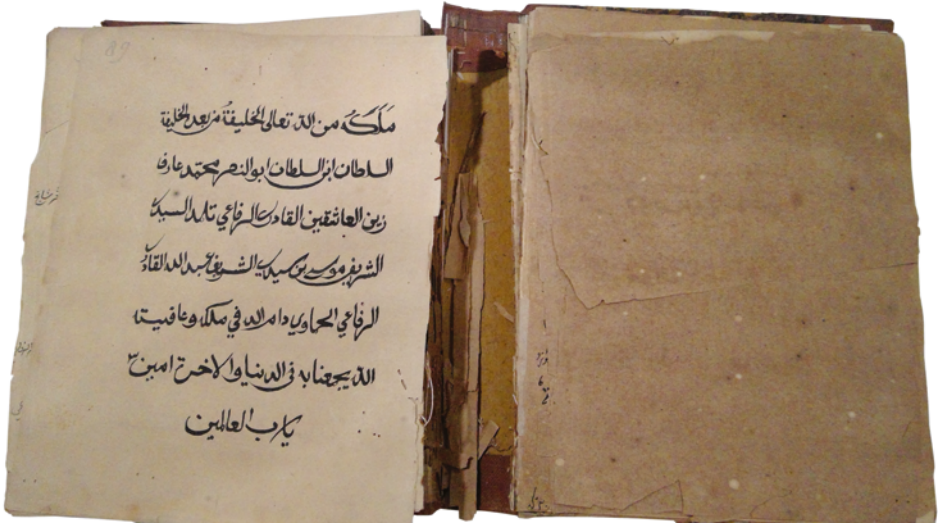 ملكه من الله تعالى الخليفة من بعد الخليفة
السلطان ابن السلطان ابو النصر محمد عارفا
زين العاشقين القادري الرفاعي تابع السيد
الشريف موسى بن سيدي الشريف عبد الله القادري
الرفاعي الحماوي دام الله في ملكه وعافيته
الله يجمعنا به في الدنيا والاخرة امين
يا رب العالمين
89